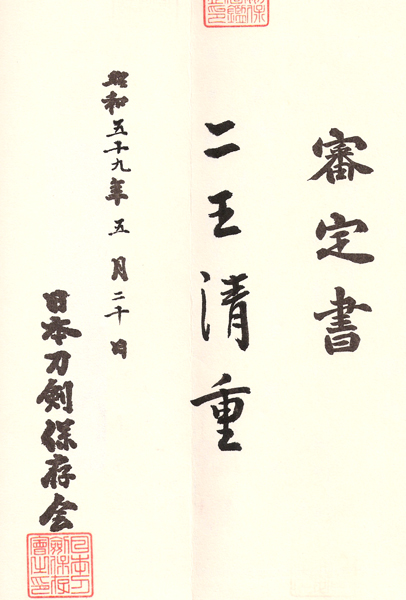 審定書
二王清重
昭和五十九年五月二十日
日本刀剣保存会